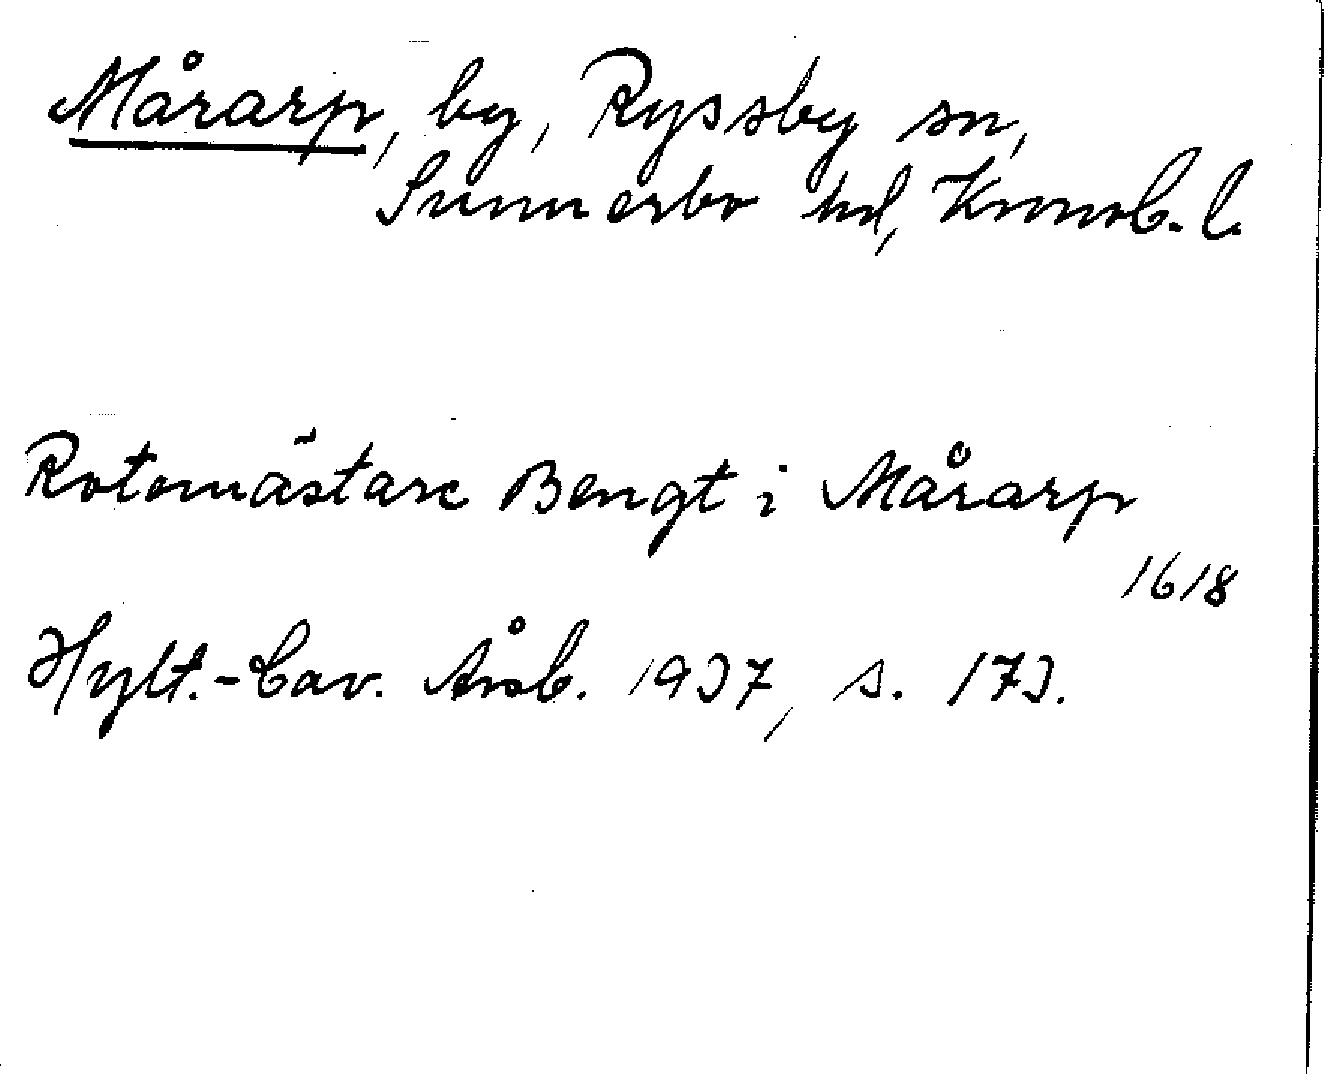 Mårarp, by, Ryssby sn,
Sunnerbo hd, Kronob. l.
Rotomästare Bengt i Mårarp
1618
Hylt.-Cav. Årsb. 1937, s. 173.